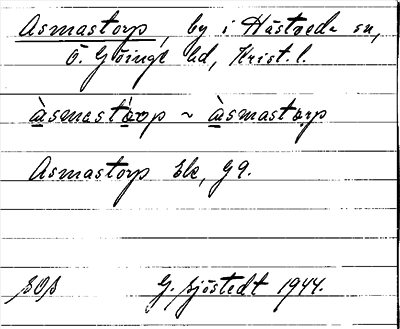 Asmastorp, by i Hästveda sn,
Ö. Göinge hd, Krist. l.
àsmastàrp ~ àsmastǫrp
Asmastorp Ek, G 9.
SOS G. Sjöstedt 1944.